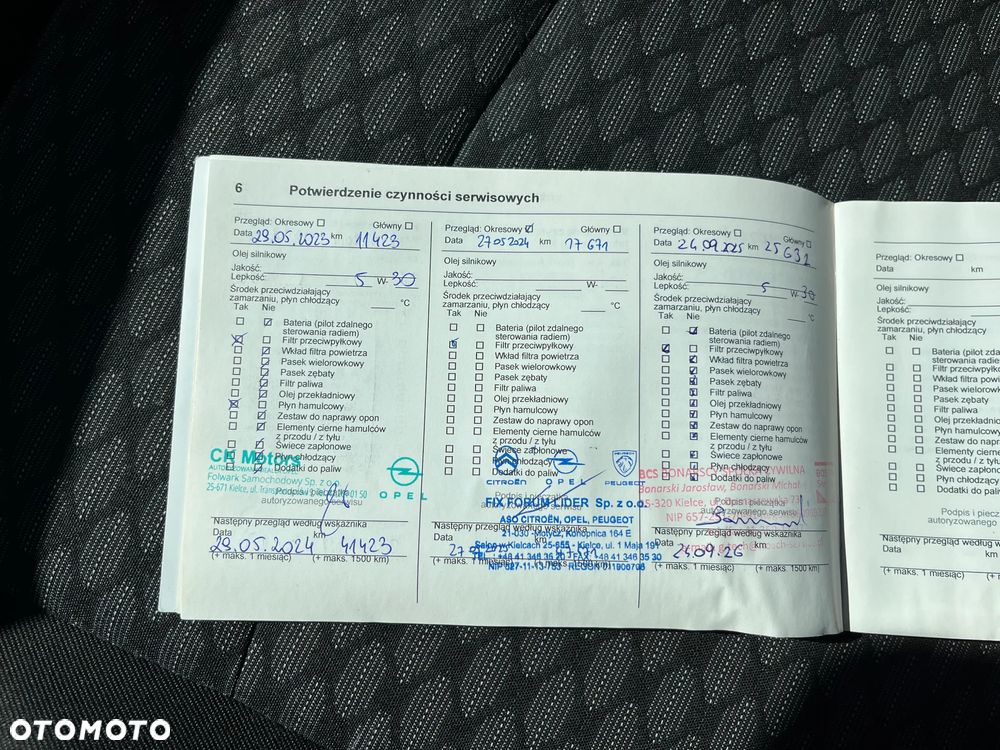 6 Potwierdzenie czynności serwisowych
Przegląd: Okresowy ☐ Główny ☐
Data 29.05.2023 km 11423
Olej silnikowy
Jakość:
Lepkość: 5 W- 30
Środek przeciwdziałający
zamarzaniu, płyn chłodzący °C
Tak Nie
Bateria (pilot zdalnego
sterowania radiem)
Filtr przeciwpyłkowy
Wkład filtra powietrza
Pasek wielorowkowy
Pasek zębaty
Filtr paliwa
Olej przekładniowy
Płyn hamulcowy
Zestaw do naprawy opon
Elementy cierne hamulców
z przodu / z tyłu
Świece zapłonowe
Płyn chłodzący
Dodatki do paliw
Motors
Folwark Samochodowy Sp. z o.o.
25-671 Kielce, ul.
OPEL
Podpis i pieczątka
autoryzowanego serwisu
Następny przegląd według wskaźnika
Data km
29.05.2024 41423
(+ maks. 1 miesiąc) (+ maks. 1500 km)
Przegląd: Okresowy ☑ Główny ☐
Data 27 05 2024 km 17 671
Olej silnikowy
Jakość:
Lepkość: W-
Środek przeciwdziałający
zamarzaniu, płyn chłodzący °C
Tak Nie
Bateria (pilot zdalnego
sterowania radiem)
Filtr przeciwpyłkowy
Wkład filtra powietrza
Pasek wielorowkowy
Pasek zębaty
Filtr paliwa
Olej przekładniowy
Płyn hamulcowy
Zestaw do naprawy opon
Elementy cierne hamulców
z przodu / z tyłu
Świece zapłonowe
Płyn chłodzący
Dodatki do paliw
CITROËN OPEL PEUGEOT
Podpis i pieczątka
FIX FORUM LIDER Sp. z o.o.
ASO CITROËN, OPEL, PEUGEOT
21-030 Motycz, Konopnica 164 E
Następny przegląd według wskaźnika
Salon w Kielcach 25-655 Kielce, ul. 1 Maja 191
Data km
(+ maks. 1 miesiąc)
Przegląd: Okresowy ☐ Główny ☐
Data 24.09.2025 km 25631
Olej silnikowy
Jakość:
Lepkość: 5 W- 30
Środek przeciwdziałający
zamarzaniu, płyn chłodzący °C
Tak Nie
Bateria (pilot zdalnego
sterowania radiem)
Filtr przeciwpyłkowy
Wkład filtra powietrza
Pasek wielorowkowy
Pasek zębaty
Filtr paliwa
Olej przekładniowy
Płyn hamulcowy
Zestaw do naprawy opon
Elementy cierne hamulców
z przodu / z tyłu
Świece zapłonowe
Płyn chłodzący
Dodatki do paliw
BCS
Bonarski Jarosław, Bonarski Michał
25-320 Kielce,
Podpis i pieczątka
autoryzowanego serwisu
NIP
Następny przegląd według wskaźnika
Data km
24.09.26
(+ maks. 1 miesiąc) (+ maks. 1500 km)
Przegląd: Okresowy ☐
Data km
Olej silnikowy
Jakość:
Lepkość:
Środek przeciwdziałający
zamarzaniu, płyn chłodzący
Tak Nie
Bateria (pilot
sterowania
Filtr przeciwpy
Wkład filtra po
Pasek wieloro
Pasek zębaty
Filtr paliwa
Olej przekład
Płyn hamulco
Zestaw do nap
Elementy cier
z przodu / z ty
Świece zapło
Płyn chłodząc
Dodatki do pa
Podpis i piecz
autoryzowaneg
Następny przegląd według w
Data km
(+ maks. 1 miesiąc)
OTOMOTO